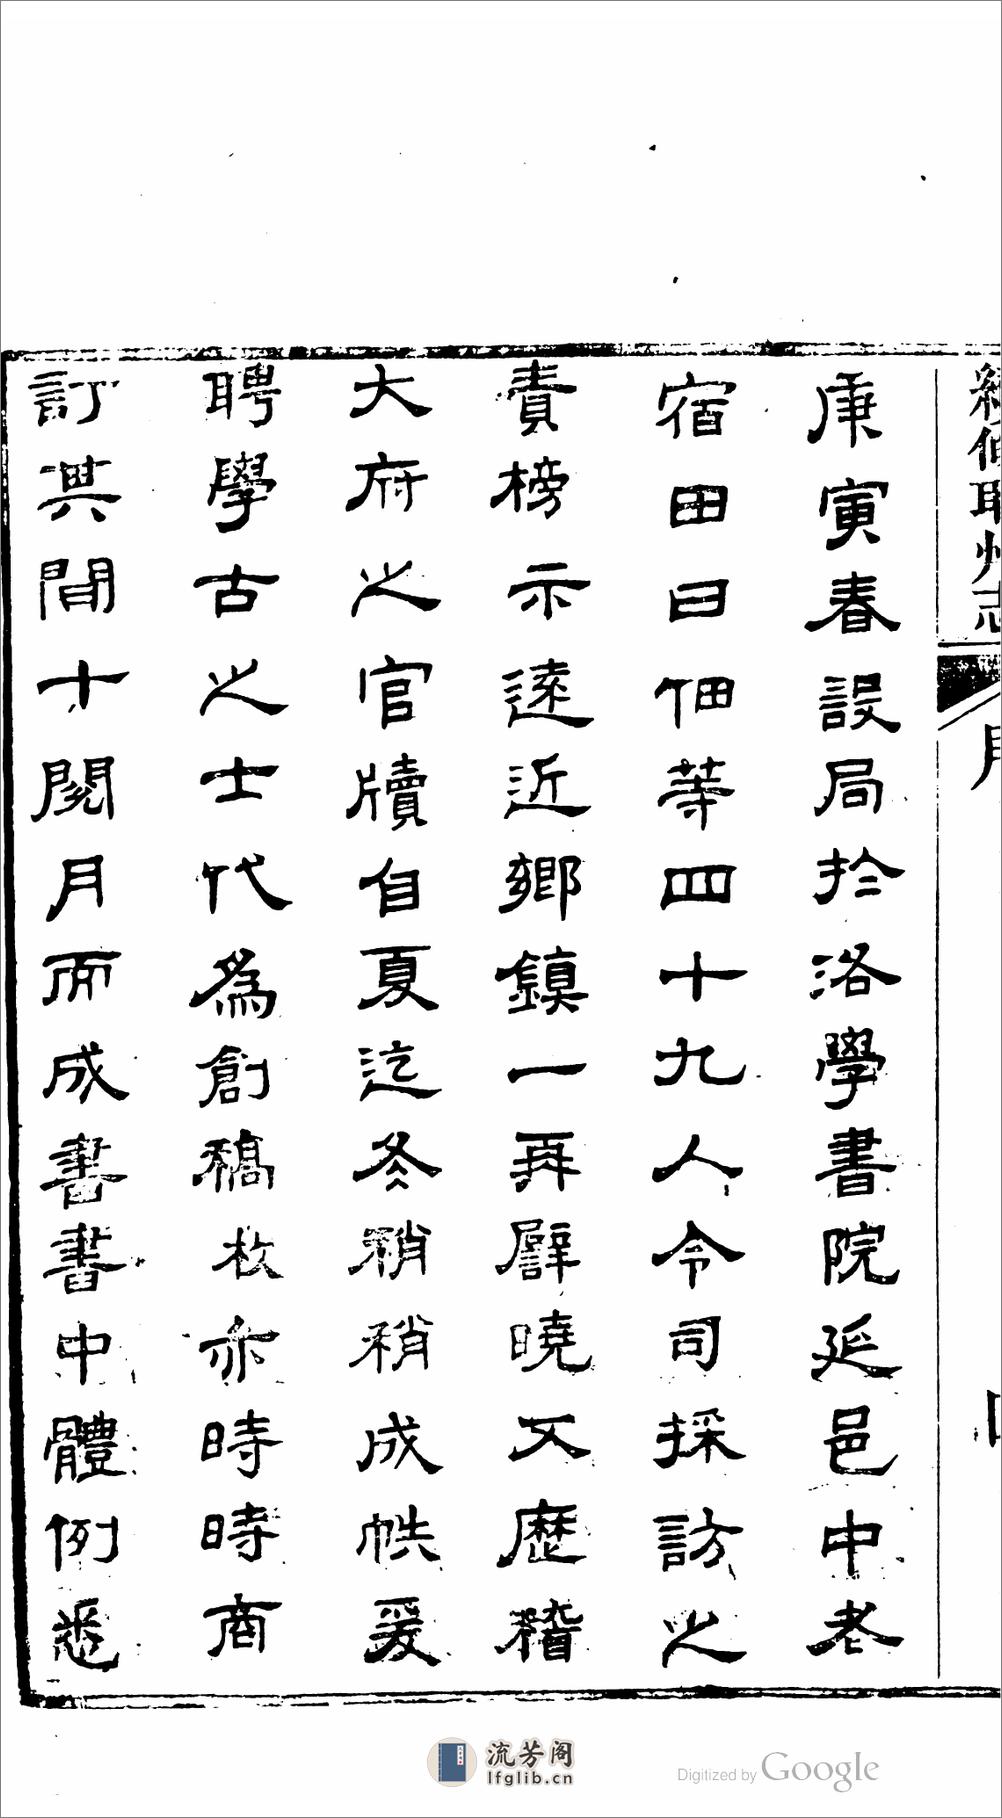 續修耀州志
庚寅春設局於洛學書院延邑中老
宿田曰佃等四十九人令司採訪之
責榜示遠近鄉鎮一再劈曉又歷稽
大府之官牘自夏迄冬稍稍成帙爰
聘學古之士代為創稿枚亦時時商
訂其間十閱月而成書書中體例悉
流芳阁
lfglib.cn
Digitized by Google